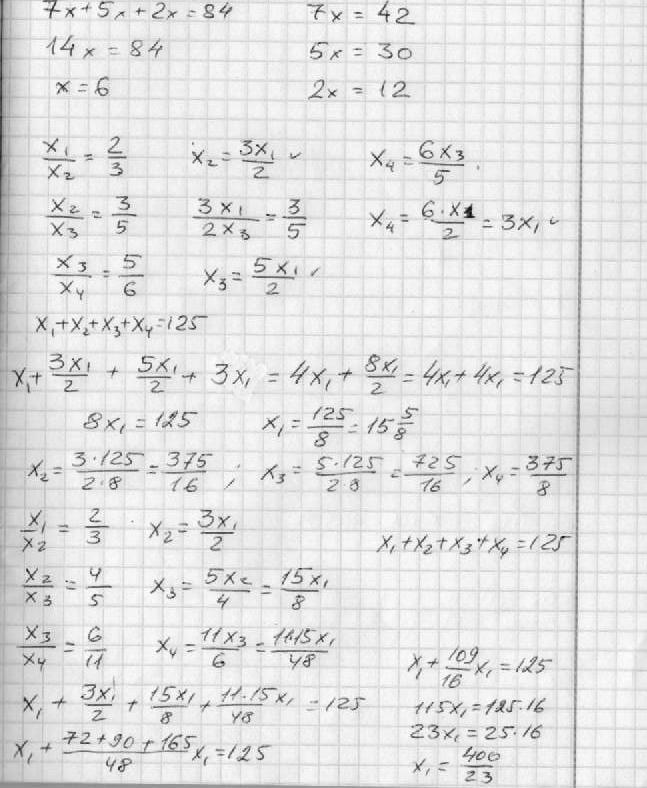 7x+5x+2x=84 7x = 42
14x = 84 5x = 30
x = 6 2x = 12
x₁/x₂ = 2/3 x₂ = 3x₁/2 ✓ x₄ = 6x₃/5
x₂/x₃ = 3/5 3x₁/2x₃ = 3/5 x₄ = 6·x1/2 = 3x₁ ✓
x₃/x₄ = 5/6 x₃ = 5x₁/2 ✓
x₁+x₂+x₃+x₄=125
x₁+ 3x₁/2 + 5x₁/2 + 3x₁ = 4x₁ + 8x₁/2 = 4x₁+4x₁ = 125
8x₁ = 125 x₁ = 125/8 = 15 5/8
x₂ = 3·125/2·8 = 375/16 ; x₃ = 5·125/2·8 = 725/16 ; x₄ = 375/8
x₁/x₂ = 2/3 x₂ = 3x₁/2 x₁+x₂+x₃+x₄=125
x₂/x₃ = 4/5 x₃ = 5x₂/4 = 15x₁/8
x₃/x₄ = 6/11 x₄ = 11x₃/6 = 11·15x₁/48
x₁ + 109/16 x₁ = 125
x₁ + 3x₁/2 + 15x₁/8 + 11·15x₁/48 = 125 115x₁ = 125·16
23x₁ = 25·16
x₁ + 72+90+165/48 x₁ = 125 x₁ = 400/23